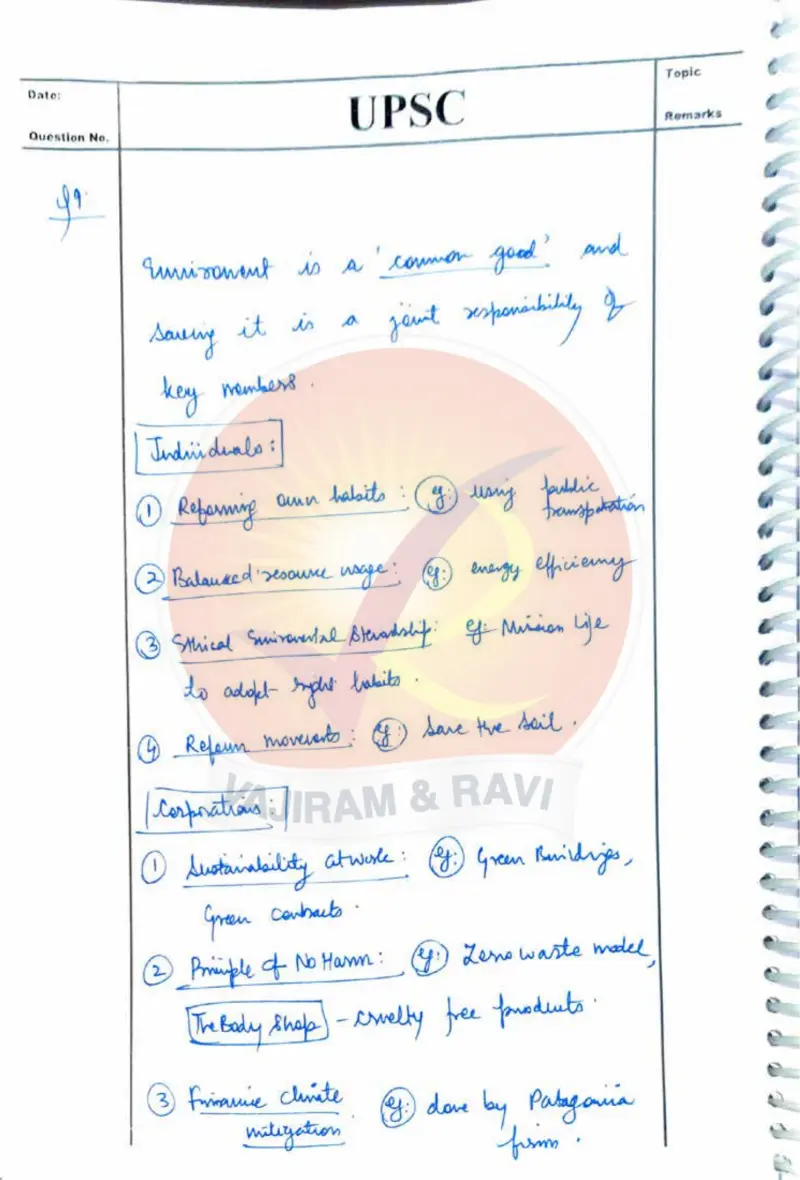 Date:
Question No.
UPSC
Topic
Remarks
Environment is a 'common good' and
saving it is a joint responsibility of
key members.
Individuals:
① Reforming own habits: eg: using public
transportation
② Balanced resource usage: eg: energy efficiency
③ Ethical Environmental Stewardship: eg: Mission Life
to adopt right habits.
④ Reform movements: eg: Save the Soil.
VAJIRAM & RAVI
Corporations:
① Sustainability at work: eg: Green Buildings,
Green contracts.
② Principle of No Harm: eg: Zero waste model,
The Body Shop - cruelty free products.
③ Finance climate eg: done by Patagonia
mitigation firm.